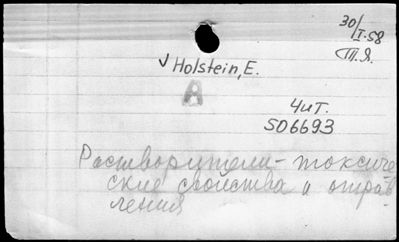 30/I-58
Т.Я.
✓ Holstein, E.
A
Чит.
S06693
Растворители - токсиче
ские свойства и отрав
ления